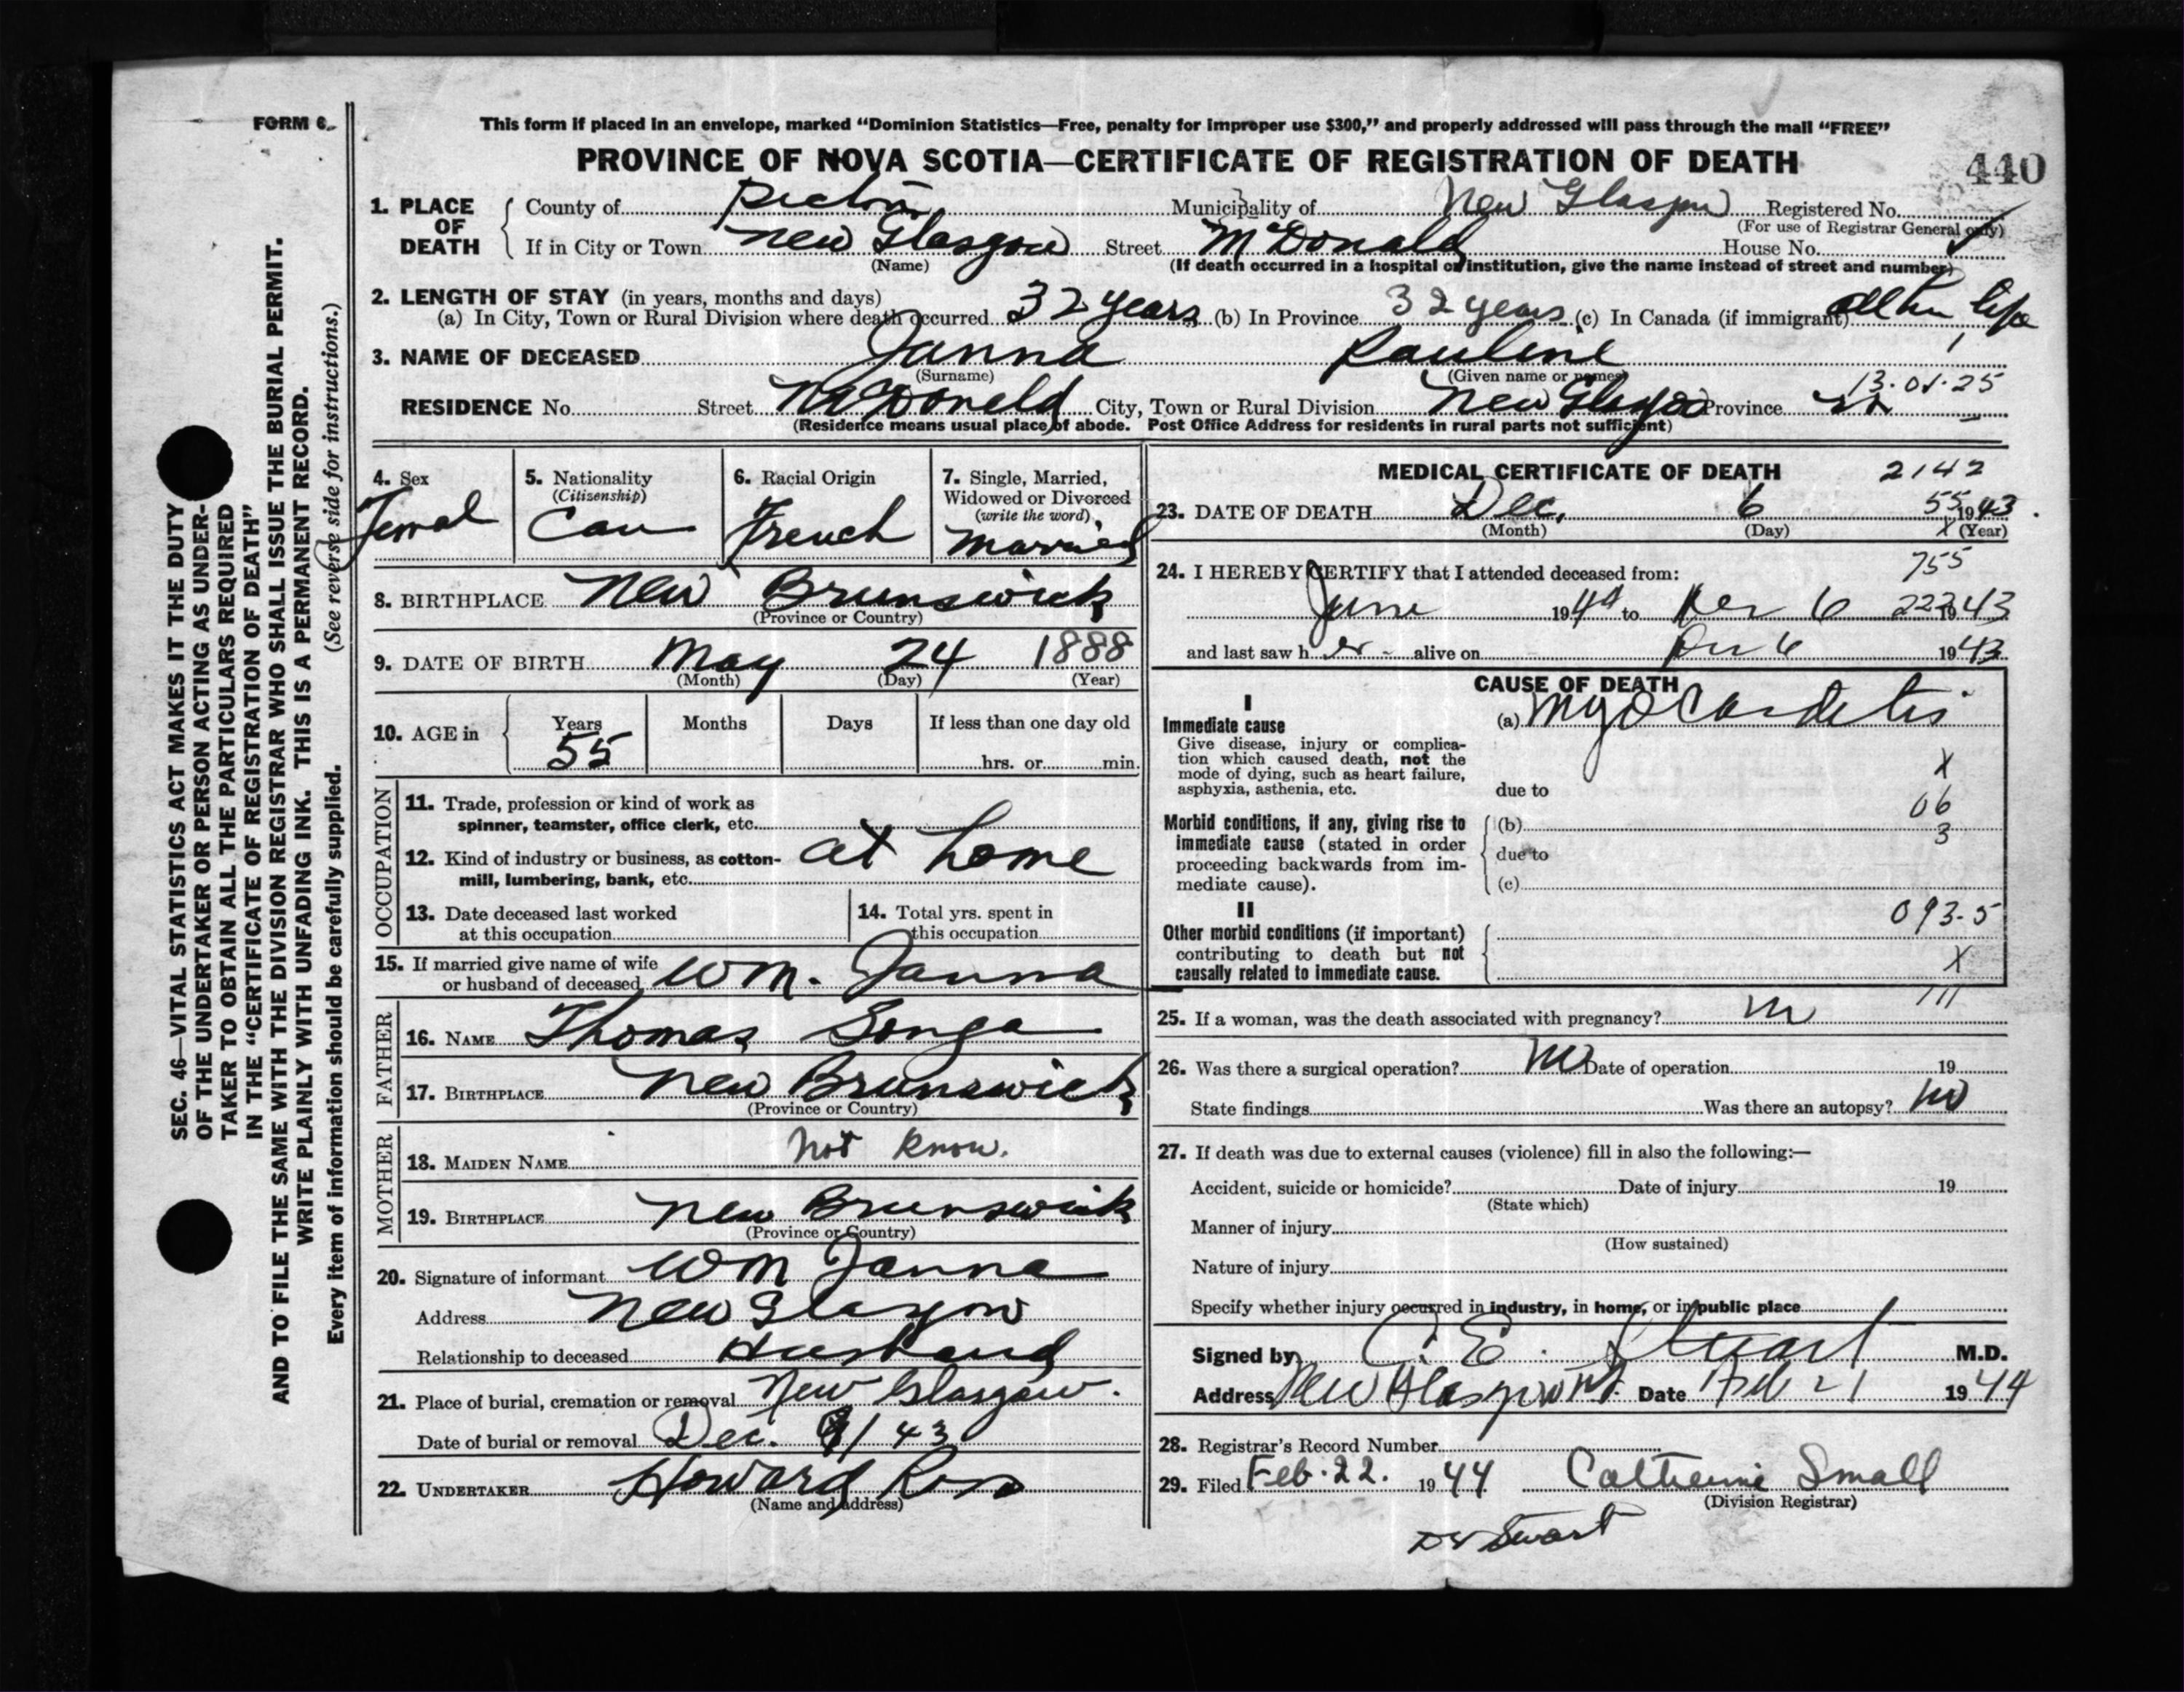 FORM 6.
This form if placed in an envelope, marked “Dominion Statistics—Free, penalty for improper use $300,” and properly addressed will pass through the mail “FREE”
PROVINCE OF NOVA SCOTIA—CERTIFICATE OF REGISTRATION OF DEATH
440
1. PLACE OF DEATH
County of Pictou Municipality of New Glasgow Registered No.
(For use of Registrar General only)
If in City or Town New Glasgow Street McDonald House No.
(Name) (If death occurred in a hospital or institution, give the name instead of street and number)
2. LENGTH OF STAY (in years, months and days)
(a) In City, Town or Rural Division where death occurred 32 years (b) In Province 32 years (c) In Canada (if immigrant) all her life
3. NAME OF DECEASED Janna Pauline
(Surname) (Given name or names)
13-01-25
RESIDENCE No. Street McDonald City, Town or Rural Division New Glasgow Province NS
(Residence means usual place of abode. Post Office Address for residents in rural parts not sufficient)
4. Sex Femal
5. Nationality (Citizenship) Can
6. Racial Origin French
7. Single, Married, Widowed or Divorced (write the word) Married
8. BIRTHPLACE New Brunswick
(Province or Country)
9. DATE OF BIRTH May 24 1888
(Month) (Day) (Year)
10. AGE in Years 55 Months Days If less than one day old
hrs. or min.
OCCUPATION
11. Trade, profession or kind of work as
spinner, teamster, office clerk, etc.
12. Kind of industry or business, as cotton- at home
mill, lumbering, bank, etc.
13. Date deceased last worked
at this occupation
14. Total yrs. spent in
this occupation
15. If married give name of wife
or husband of deceased Wm. Janna
FATHER
16. NAME Thomas Songa
17. BIRTHPLACE New Brunswick
(Province or Country)
MOTHER
18. MAIDEN NAME Not Know.
19. BIRTHPLACE New Brunswick
(Province or Country)
20. Signature of informant Wm Janna
Address New Glasgow
Relationship to deceased Husband
21. Place of burial, cremation or removal New Glasgow.
Date of burial or removal Dec. 9/43
22. UNDERTAKER Howard Ross
(Name and address)
MEDICAL CERTIFICATE OF DEATH 2142
23. DATE OF DEATH Dec. 6 55 1943.
(Month) (Day) X (Year)
24. I HEREBY CERTIFY that I attended deceased from: 755
June 19 to Dec 6 1943
and last saw her alive on Dec 6 1943
CAUSE OF DEATH
I
Immediate cause
Give disease, injury or complica-
tion which caused death, not the
mode of dying, such as heart failure,
asphyxia, asthenia, etc.
(a) Myocarditis
X
due to
06
Morbid conditions, if any, giving rise to
immediate cause (stated in order
proceeding backwards from im-
mediate cause).
(b)
3
due to
(c)
II
093-5
Other morbid conditions (if important)
contributing to death but not
causally related to immediate cause.
X
111
25. If a woman, was the death associated with pregnancy? no
26. Was there a surgical operation? no Date of operation 19
State findings Was there an autopsy? no
27. If death was due to external causes (violence) fill in also the following:—
Accident, suicide or homicide? Date of injury 19
(State which)
Manner of injury
(How sustained)
Nature of injury
Specify whether injury occurred in industry, in home, or in public place
Signed by C. E. Stuart M.D.
Address New Glasgow NS. Date Feb 21 1944
28. Registrar's Record Number
29. Filed Feb. 22. 1944 Catherine Small
(Division Registrar)
Dr Stuart
SEC. 46—VITAL STATISTICS ACT MAKES IT THE DUTY
OF THE UNDERTAKER OR PERSON ACTING AS UNDER-
TAKER TO OBTAIN ALL THE PARTICULARS REQUIRED
IN THE “CERTIFICATE OF REGISTRATION OF DEATH”
AND TO FILE THE SAME WITH THE DIVISION REGISTRAR WHO SHALL ISSUE THE BURIAL PERMIT.
WRITE PLAINLY WITH UNFADING INK. THIS IS A PERMANENT RECORD.
Every item of information should be carefully supplied. (See reverse side for instructions.)